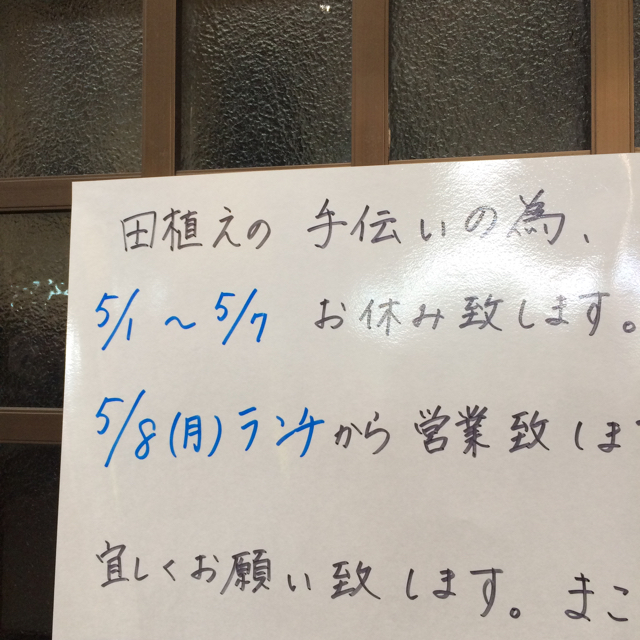 田植えの 手伝いの為、
5/1 ~ 5/7 お休み致します。
5/8(月)ランチから営業致しま
宜しくお願い致します。まこ